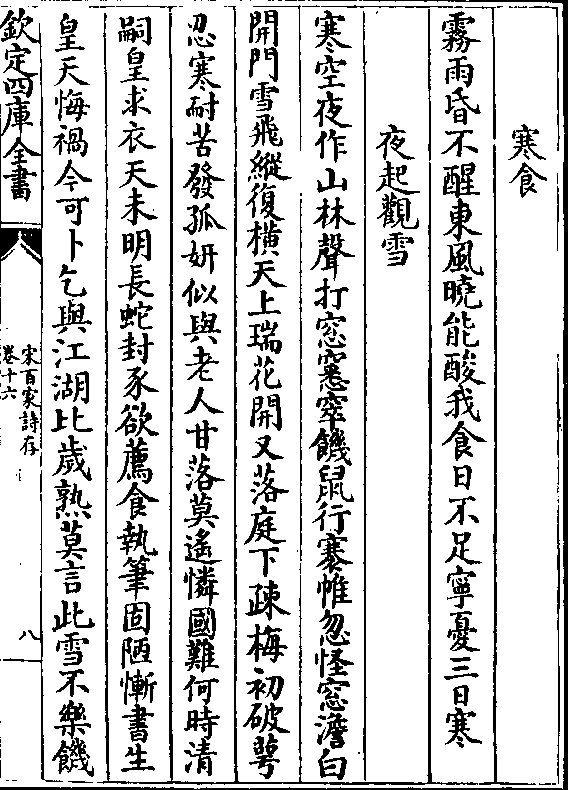 寒食
霧雨昏不醒東風曉能酸我食日不足寧憂三日寒
夜起觀雪
寒空夜作山林聲打窓窸窣饑鼠行褰帷忽怪窓澹白
開門雪飛縱復橫天上瑞花開又落庭下疎梅初破萼
忍寒耐苦發孤妍似與老人甘落莫遙憐國難何時清
嗣皇求衣天未明長蛇封豕欲薦食執筆固陋慚書生
皇天悔禍今可卜乞與江湖比歲熟莫言此雪不樂饑
欽定四庫全書
宋百家詩存
卷十六
八